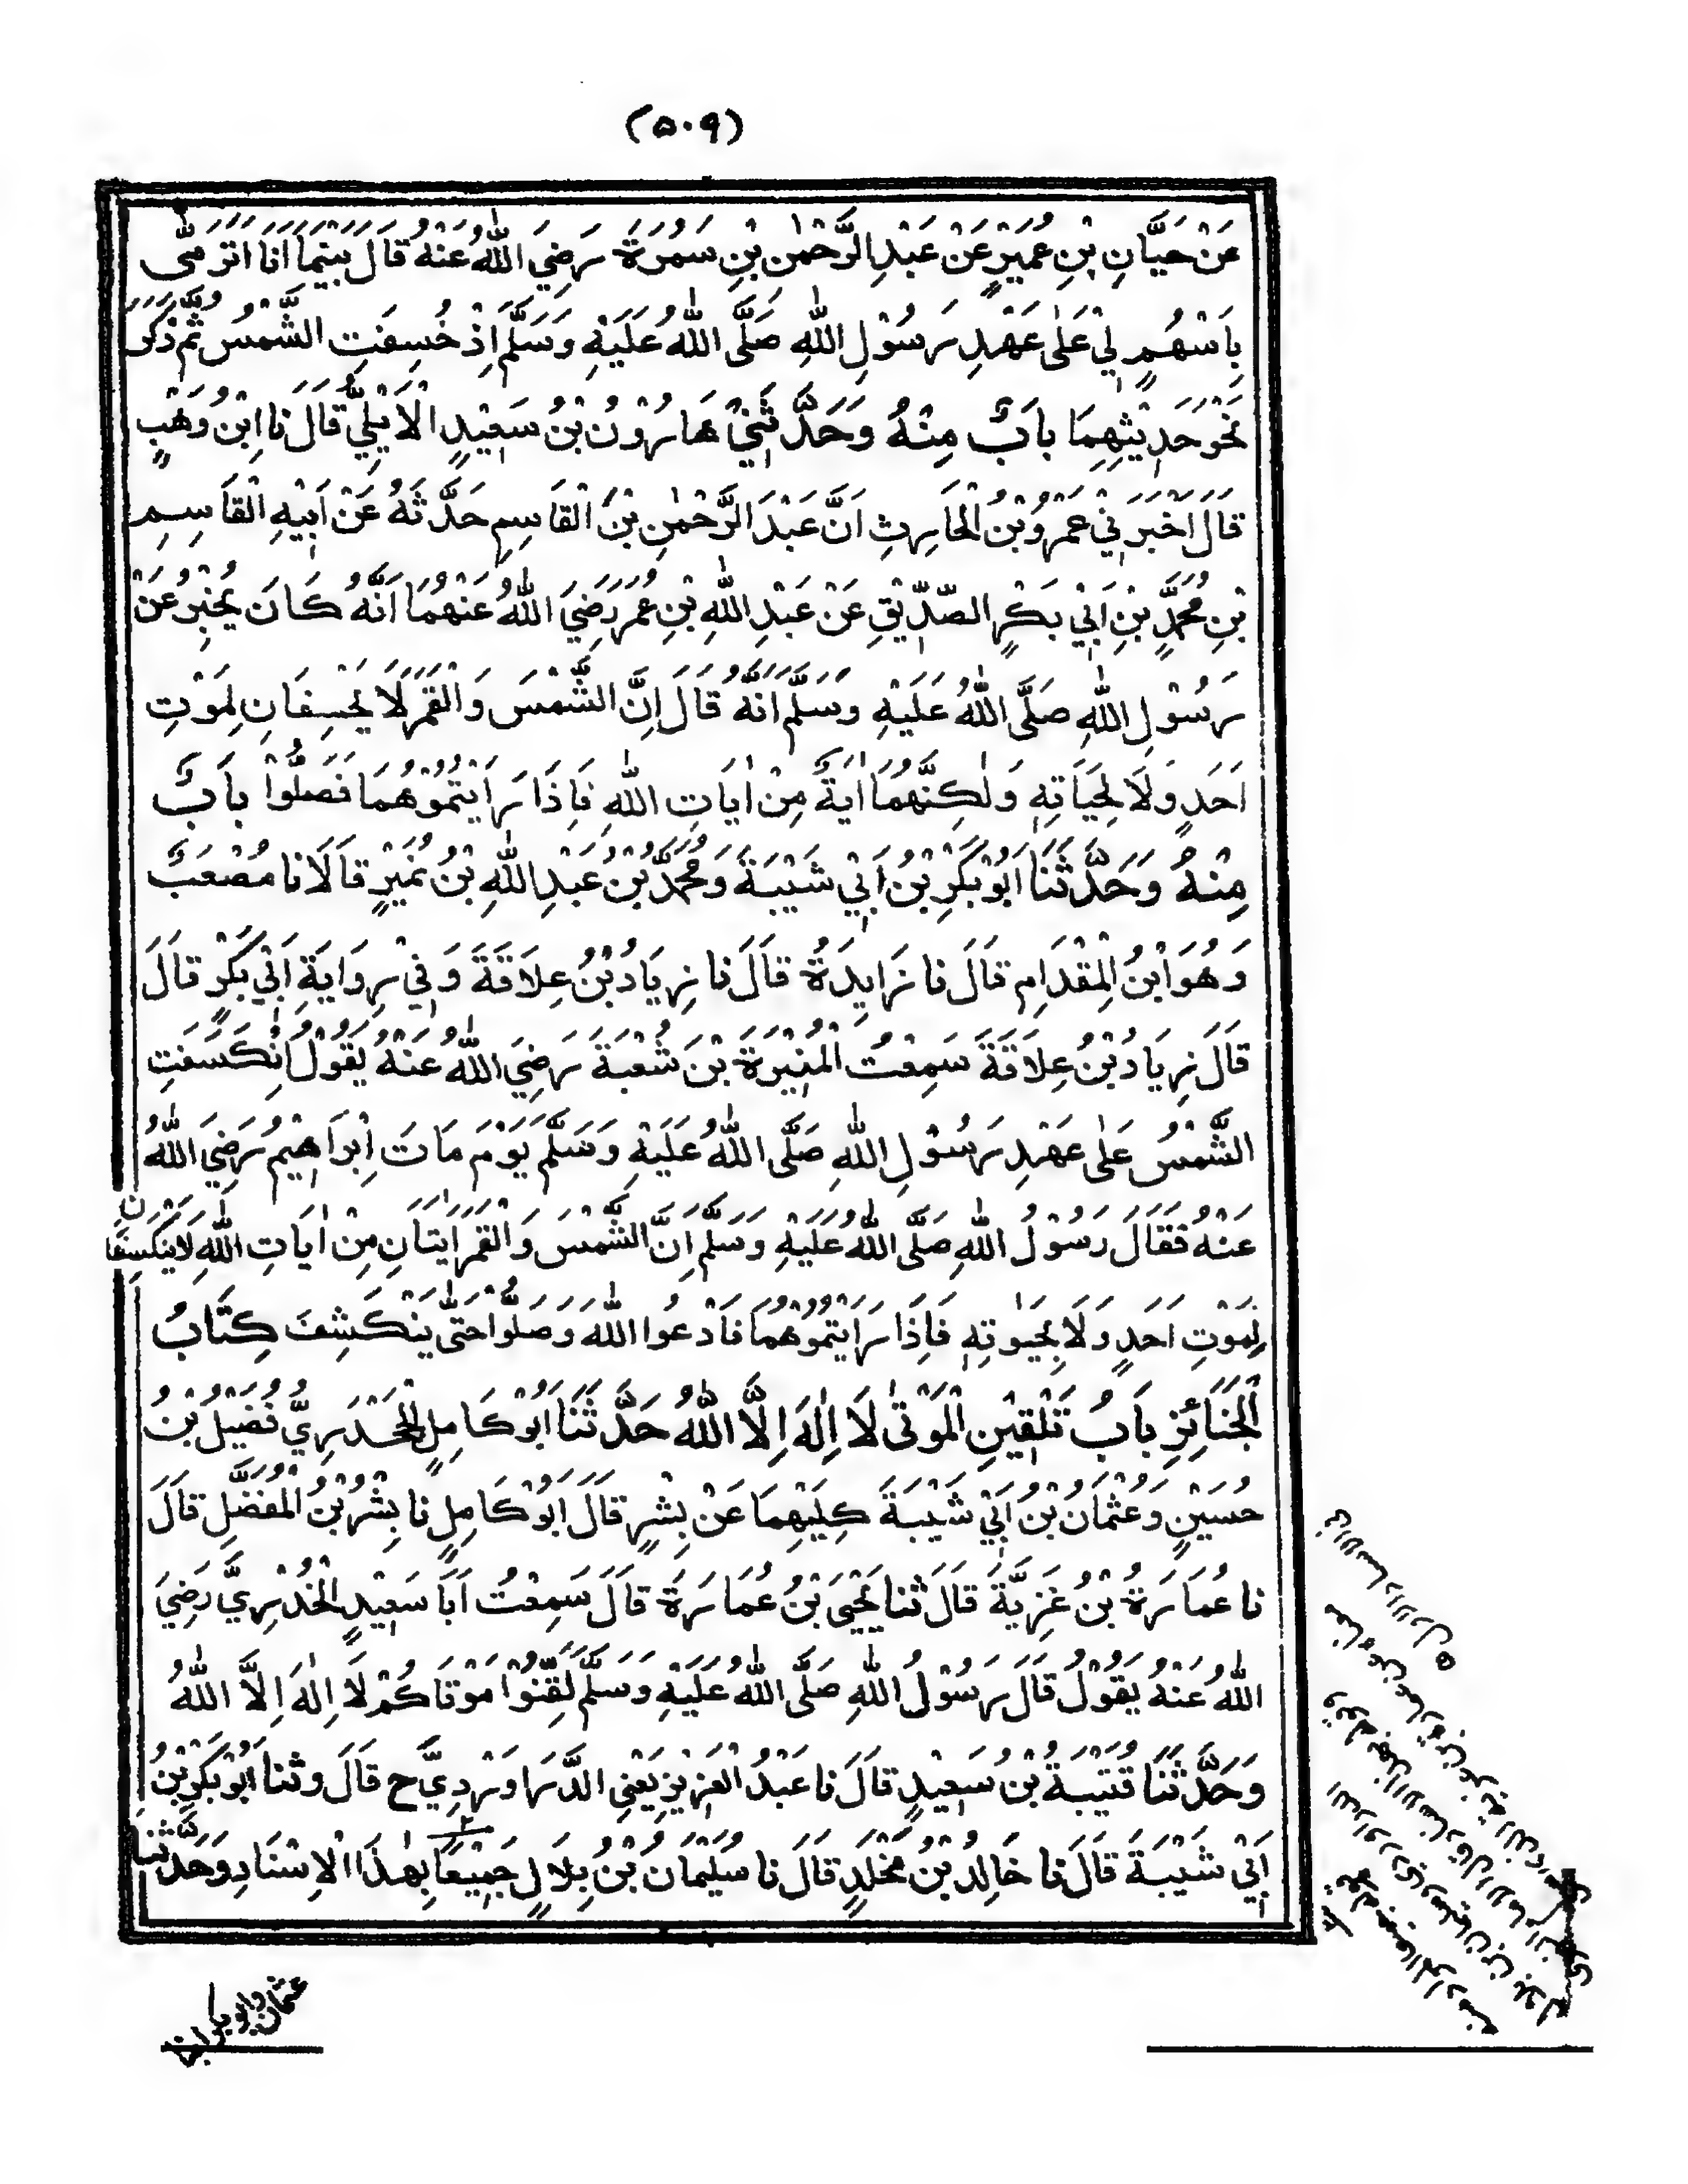 (۵۰۹)
عَنْ حَيَّانِ بْنِ عُمَيْرٍ عَنْ عَبْدِ الرَّحْمٰنِ بْنِ سَمُرَةَ رَضِيَ اللّٰهُ عَنْهُ قَالَ بَيْنَمَا اَنَا اَتَرَمّٰى
بِاَسْهُمٍ لِيْ عَلٰى عَهْدِ رَسُوْلِ اللّٰهِ صَلَّى اللّٰهُ عَلَيْهِ وَسَلَّمَ اِذْ خُسِفَتِ الشَّمْسُ ثُمَّ ذَكَرَ
نَحْوَ حَدِيْثِهِمَا بَابٌ مِنْهُ وَحَدَّثَنِيْ هَارُوْنُ بْنُ سَعِيْدٍ الْاَيْلِيُّ قَالَ نَا ابْنُ وَهْبٍ
قَالَ اَخْبَرَنِيْ عَمْرُو بْنُ الْحَارِثِ اَنَّ عَبْدَ الرَّحْمٰنِ بْنَ الْقَاسِمِ حَدَّثَهُ عَنْ اَبِيْهِ الْقَاسِمِ
بْنِ مُحَمَّدِ بْنِ اَبِيْ بَكْرٍ الصِّدِّيْقِ عَنْ عَبْدِ اللّٰهِ بْنِ عُمَرَ رَضِيَ اللّٰهُ عَنْهُمَا اَنَّهُ كَانَ يُخْبِرُ عَنْ
رَسُوْلِ اللّٰهِ صَلَّى اللّٰهُ عَلَيْهِ وَسَلَّمَ اَنَّهُ قَالَ اِنَّ الشَّمْسَ وَالْقَمَرَ لَا يَخْسِفَانِ لِمَوْتِ
اَحَدٍ وَلَا لِحَيَاتِهٖ وَلٰكِنَّهُمَا اٰيَةٌ مِنْ اٰيَاتِ اللّٰهِ فَاِذَا رَاَيْتُمُوْهُمَا فَصَلُّوْا بَابٌ
مِنْهُ وَحَدَّثَنَا اَبُوْ بَكْرِ بْنُ اَبِيْ شَيْبَةَ وَمُحَمَّدُ بْنُ عَبْدِ اللّٰهِ بْنُ نُمَيْرٍ قَالَا نَا مُصْعَبٌ
وَهُوَ ابْنُ الْمِقْدَامِ قَالَ نَا زَايِدَةُ قَالَ نَا زِيَادُ بْنُ عِلَاقَةَ وَفِيْ رِوَايَةِ اَبِيْ بَكْرٍ قَالَ
قَالَ زِيَادُ بْنُ عِلَاقَةَ سَمِعْتُ الْمُغِيْرَةَ بْنَ شُعْبَةَ رَضِيَ اللّٰهُ عَنْهُ يَقُوْلُ اِنْكَسَفَتِ
الشَّمْسُ عَلٰى عَهْدِ رَسُوْلِ اللّٰهِ صَلَّى اللّٰهُ عَلَيْهِ وَسَلَّمَ يَوْمَ مَاتَ اِبْرَاهِيْمُ رَضِيَ اللّٰهُ
عَنْهُ فَقَالَ رَسُوْلُ اللّٰهِ صَلَّى اللّٰهُ عَلَيْهِ وَسَلَّمَ اِنَّ الشَّمْسَ وَالْقَمَرَ اٰيَتَانِ مِنْ اٰيَاتِ اللّٰهِ لَا يَنْكَسِفَانِ
لِمَوْتِ اَحَدٍ وَلَا لِحَيٰوتِهٖ فَاِذَا رَاَيْتُمُوْهُمَا فَادْعُوا اللّٰهَ وَصَلُّوْا حَتّٰى يَنْكَشِفَ كِتَابُ
الْجَنَائِزِ بَابُ تَلْقِيْنِ الْمَوْتٰى لَا اِلٰهَ اِلَّا اللّٰهُ حَدَّثَنَا اَبُوْ كَامِلٍ الْجَحْدَرِيُّ فُضَيْلُ بْنُ
حُسَيْنٍ وَعُثْمَانُ بْنُ اَبِيْ شَيْبَةَ كِلَيْهِمَا عَنْ بِشْرٍ قَالَ اَبُوْ كَامِلٍ نَا بِشْرُ بْنُ الْمُفَضَّلِ قَالَ
نَا عُمَارَةُ بْنُ غَزِيَّةَ قَالَ ثَنَا يَحْيَى بْنُ عُمَارَةَ قَالَ سَمِعْتُ اَبَا سَعِيْدٍ الْخُدْرِيَّ رَضِيَ
اللّٰهُ عَنْهُ يَقُوْلُ قَالَ رَسُوْلُ اللّٰهِ صَلَّى اللّٰهُ عَلَيْهِ وَسَلَّمَ لَقِّنُوْا مَوْتَاكُمْ لَا اِلٰهَ اِلَّا اللّٰهُ
وَحَدَّثَنَا قُتَيْبَةُ بْنُ سَعِيْدٍ قَالَ نَا عَبْدُ الْعَزِيْزِ يَعْنِي الدَّرَاوَرْدِيَّ ح قَالَ وثنا اَبُوْ بَكْرِ بْنُ
اَبِيْ شَيْبَةَ قَالَ نَا خَالِدُ بْنُ مَخْلَدٍ قَالَ نَا سُلَيْمَانُ بْنُ بِلَالٍ جَمِيْعًا بِهٰذَا الْاِسْنَادِ وَحَدَّثَنَا